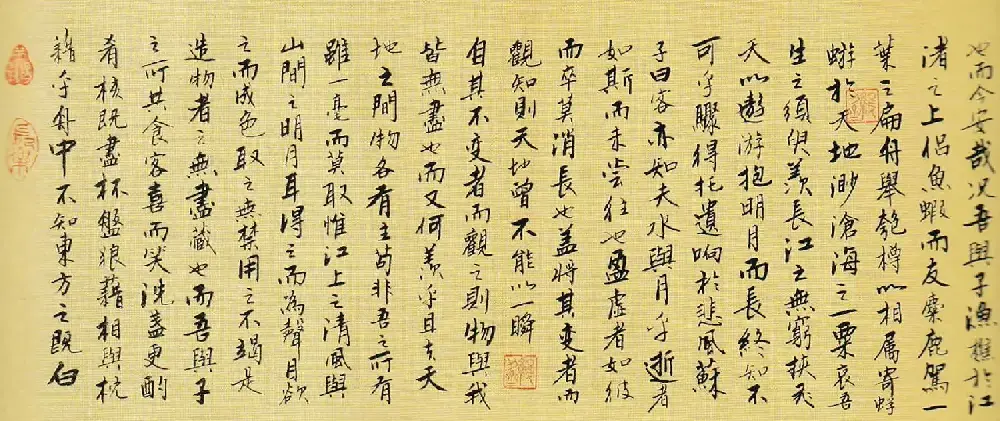 也而今安哉況吾與子漁樵於江
渚之上侶魚蝦而友麋鹿駕一
葉之扁舟舉匏樽以相属寄蜉
蝣於天地渺滄海之一粟哀吾
生之須臾羨長江之無窮挾飛
天以遨游抱明月而長終知不
可乎驟得托遺响於悲風蘇
子曰客亦知夫水與月乎逝者
如斯而未嘗往也盈虛者如彼
而卒莫消長也蓋將其變者而
觀知則天地曾不能以一瞬
自其不變者而觀之則物與我
皆無盡也而又何羨乎且夫天
地之間物各有主苟非吾之所有
雖一毫而莫取惟江上之清風與
山間之明月耳得之而為聲月欲
之而成色取之無禁用之不竭是
造物者之無盡藏也而吾與子
之所共食客喜而笑洗盞更酌
肴核既盡杯盤狼藉相與枕
藉乎舟中不知東方之既白